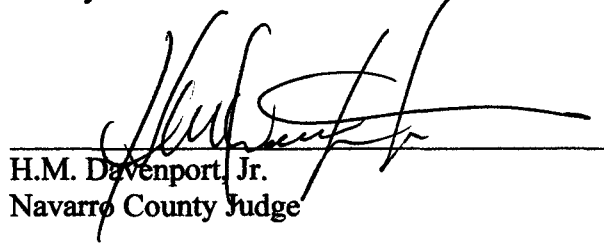 H.M. Davenport, Jr.
Navarro County Judge